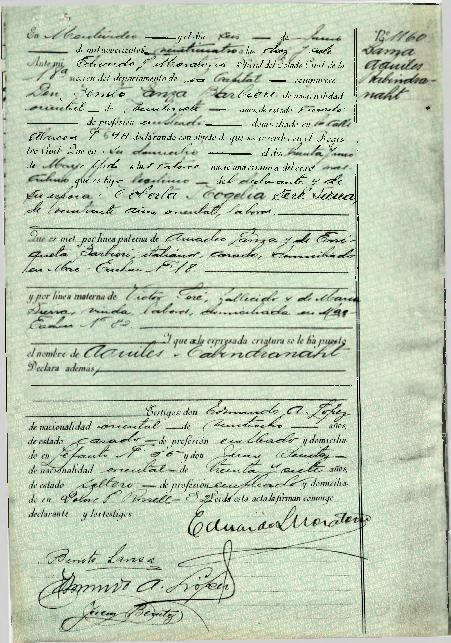 En Montevideo y el día seis de Junio
de mil novecientos veinticuatro a las diez y siete
Ante mí Eduardo J. Moratorio Oficial del Estado Civil de la
sección del departamento de la Capital comparece
Don Benito Lanza Barbieri de nacionalidad
oriental de veintisiete años, de estado
de profesión empleado domiciliado en la calle
Nº 641 declarando con objeto de que se inscriba en el Regis-
tro Civil Que en su domicilio el día treinta y uno
de Mayo ppdo a las catorce nació una criatura del sexo mas-
culino que es hijo legítimo del declarante y de
su esposa Roberta Rogelia Peré Sierra,
de veintisiete años, oriental, labores.
Que es nieto por línea paterna de Amadeo Lanza y de Enri-
queta Barbieri, italianos, casados, domiciliados
en Nº 18
y por línea materna de Victor Peré, fallecido y de María
Sierra, viuda, labores, domiciliada en
Nº 82
Y que a la expresada criatura se le ha puesto
el nombre de Aquiles Rabindranaht
Declara además,
Testigos don Edmundo A. López
de nacionalidad oriental de veintiocho años,
de estado casado de profesión empleado y domicilia-
do en Nº y don Juan Benitez
de nacionalidad oriental de treinta y siete años,
de estado soltero de profesión empleado y domicilia-
do en Leída el acta la firman conmigo
declarante y los testigos.
Eduardo J. Moratorio
Benito Lanza
Edmundo A. López
Juan Benitez
Nº 1160
Lanza
Aquiles
Rabindra-
naht